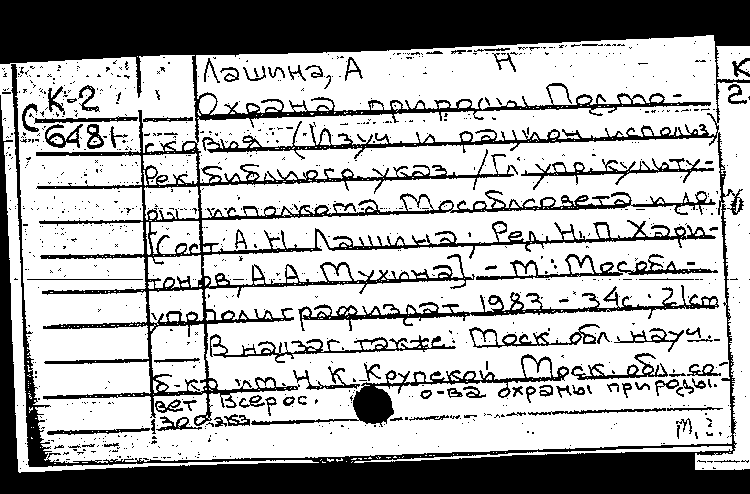 Лашина, А Н
К-2
6481
Охрана природы Подмо-
сковья. (Изуч. и рацион. использ)
Рек. библиогр. указ. / Гл. упр. культу-
ры исполкома Мособлсовета и др.
[Сост. А. Н. Лашина; Ред. Н. П. Хари-
тонов, А. А. Мухина]. - М.: Мособл-
упрполиграфиздат, 1983 - 34с.; 21cm
В надзаг. также: Моск. обл. науч.
б-ка им. Н. К. Крупской, Моск. обл. со-
вет Всерос. о-ва охраны природы.
300 экз